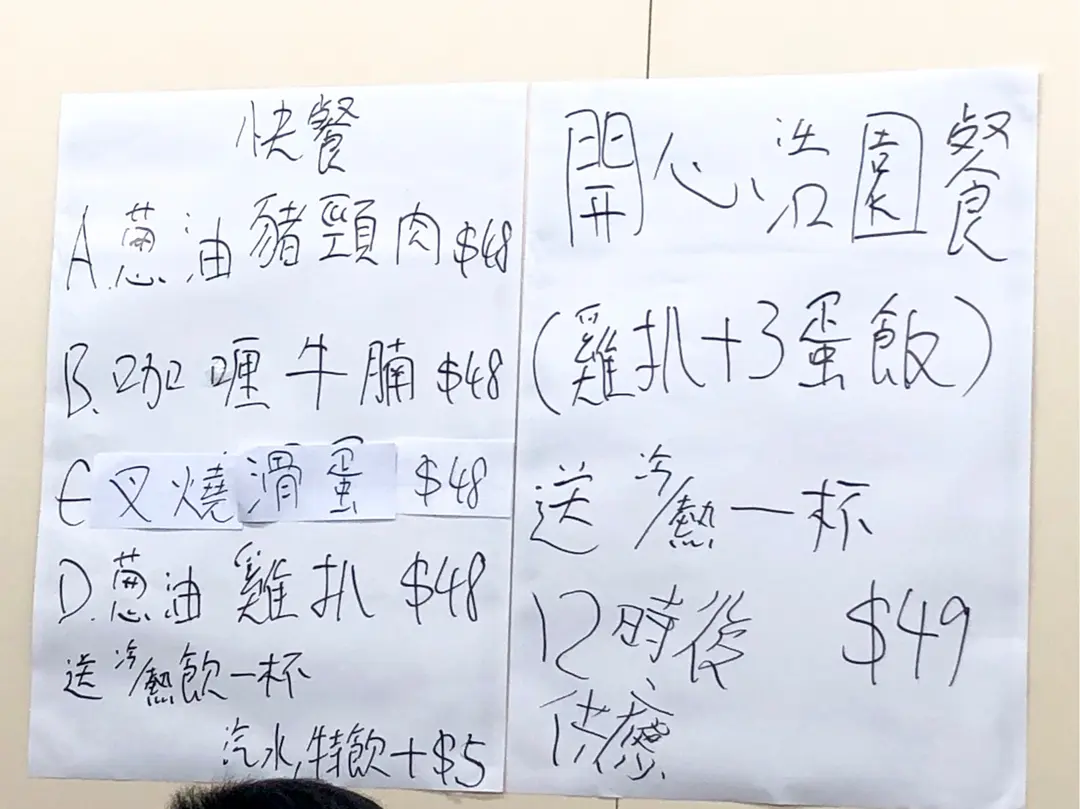 快餐
A.蔥油豬頸肉 $48
B.咖喱牛腩 $48
C 叉燒滑蛋 $48
D.蔥油雞扒 $48
送冷/熱飲一杯
汽水,特飲+$5
開心浩園餐
(雞扒+3蛋飯)
送冷/熱一杯
12時後 $49
供應